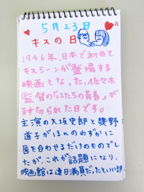 5月23日
キスの日
1946年、日本で初めて
キスシーンが登場する
映画となった、佐々木
監督の「はたちの青春」が
封切られた日です。
主演の大坂史郎と幾野
道子がほんのわずかに
唇を合わせるだけのものでし
たが、これが話題になり、
映画館は連日満員だったといいます